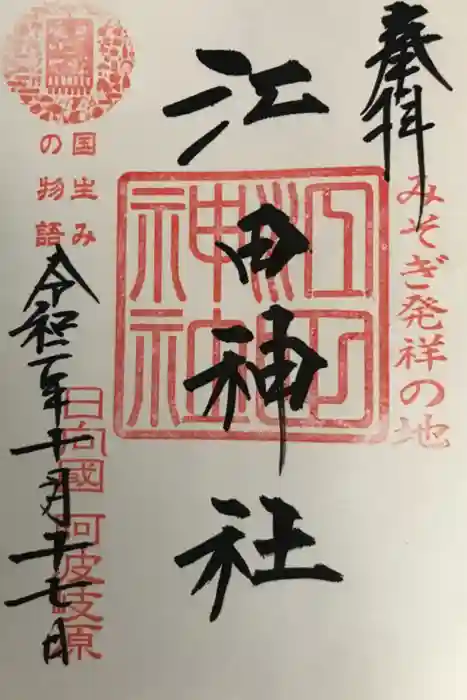 奉拝
みそぎ発祥の地
江田神社
江田神社
国生み
の物語
日向國 阿波岐原
令和二年十月十七日